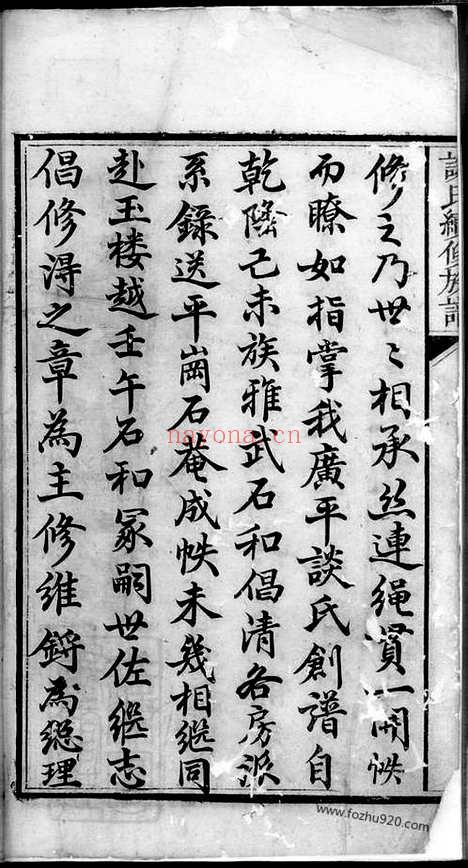 談氏續修族譜
修之乃世〻相承丝連绳貫一開帙
而瞭如指掌我廣平談氏創譜自
乾隆己未族雅武石和倡清各房派
系錄送平崗石菴成帙未幾相継同
赴玉楼越壬午石和冢嗣世佐继志
倡修淂之章為主修维鏘為總理
nayona.cn
www.fozhu920.com